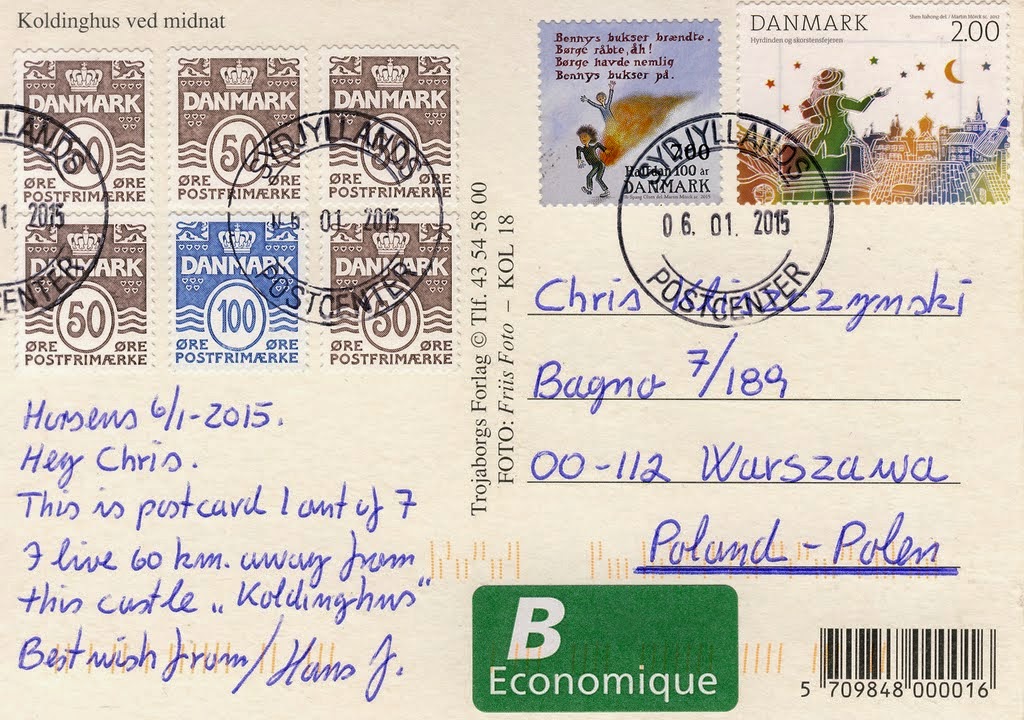 Koldinghus ved midnat
DANMARK
ØRE ØRE
POSTFRIMÆRKE
DANMARK
50
ØRE ØRE
POSTFRIMÆRKE
DANMARK
ØRE ØRE
POSTFRIMÆRKE
DANMARK
50
ØRE ØRE
POSTFRIMÆRKE
DANMARK
100
ØRE ØRE
POSTFRIMÆRKE
DANMARK
50
ØRE ØRE
POSTFRIMÆRKE
LLANDS
1. 2015
CENTER
SYDJYLLANDS
06. 01. 2015
POSTCENTER
Bennys bukser brændte.
Børge råbte, åh!
Børge havde nemlig
Bennys bukser på.
2.00
Halfdan 100 år
DANMARK
DANMARK
Hyrdinden og skorstensfejeren
2.00
SYDJYLLANDS
06. 01. 2015
POSTCENTER
Horsens 6/1-2015.
Hey Chris.
This is postcard 1 out of 7
I live 60 km. away from
this castle „Koldinghus“
Best wish from/Hans J.
Trojaborgs Forlag © Tlf. 43 54 58 00
FOTO: Friis Foto – KOL 18
Chris
Bagno 7/189
00-112 Warszawa
Poland - Polen
B
Economique
5 709848 000016